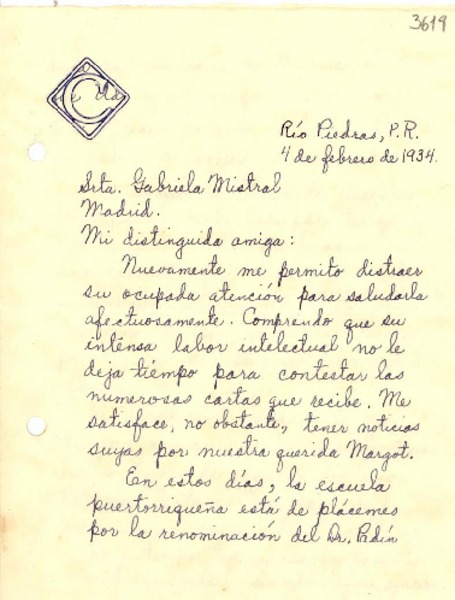 3619
C
Río Piedras, P.R.
4 de febrero de 1934.
Srta. Gabriela Mistral
Madrid.
Mi distinguida amiga:
Nuevamente me permito distraer
su ocupada atención para saludarla
afectuosamente. Comprendo que su
intensa labor intelectual no le
deja tiempo para contestar las
numerosas cartas que recibe. Me
satisface, no obstante, tener noticias
suyas por nuestra querida Margot.
En estos días, la escuela
puertorriqueña está de plácemes
por la renominación del Dr. Padín